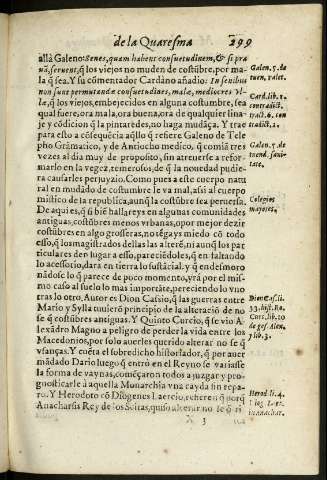 de la Quaresma 299
allà Galeno: Senes, quam habent consuetudinem, & si pra
uã, seruent, q̃ los viejos no muden de costũbre, por ma-
la q̃ sea. Y su comentador Cardano añadio. In senibus
non sunt permutandæ consuetudines, malæ, mediocres
q̃ los viejos, embejecidos en alguna costumbre, sea
qual fuere, ora mala, ora buena, ora de qualquier lina-
je, y cõdicion q̃ la pintaredes, no haga mudãça. Y trae
para esto a cõsequẽcia aq̃llo q̃ refiere Galeno de Tele
pho Grãmatico, y de Antiocho medico, q̃ comiã tres
vezes al dia muy de proposito, sin atreuerse a refor-
marlo en la vegez, temerosos, de q̃ la nouedad pudie-
ra causarles perjuyzio. Como pues a este cuerpo natu
ral en mudãdo de costumbre le va mal, assi al cuerpo
mistico de la republica, aunq̃ la costũbre sea peruersa.
De aqui es, q̃ si biẽ hallareys en algunas comunidades
antiguas, costũbres menos vrbanas, o por mejor dezir
costũbres en algo grosseras, no següays miedo cõ todo
esso, q̃ los magistrados dellas las alterẽ, ni aunq̃ los par
ticulares den lugar a esso, pareciẽdoles, q̃ en faltando
lo accessorio, dara en tierra lo sustãcial: y q̃ en desmoro
nãdose lo q̃ parece de poco momento, yrá por el mis-
mo caso al suelo lo mas importãte, pereciendo lo vno
tras lo otro. Autor es Dion Cassio, q̃ las guerras entre
Mario y Sylla tuuierõ principio de la alteraciõ de no
se q̃ costũbres antiguas. Y Quinto Curcio, q̃ se vio Ale
xãdro Magno a peligro de perder la vida entre los
Macedonios, por solo auerles querido alterar no se q̃
vsanças. Y cuẽta el sobredicho historiador, q̃ por auer
mãdado Dario luego q̃ entrò en el Reyno se variasse
la forma de vaynas, començaron todos a juzgar y pro-
gnosticarle à aquella Monarchia vna cayda sin repa-
ro. Y Herodoto cõ Diogenes Laercio, refieren q̃ porq̃
Anacharsis Rey de los Scitas, quiso alterar no se q̃ ri
X 3
Galen. 5. de
tuen. valet.
Card. lib. 2.
contradict.
tract. 6. con
tradict. 2.
Galen. 5. de
tuend. sani-
tate.
Colegios
mayores.
Dion Cas. li.
Curt. lib. 10
de gest. Alex.
y lib. 3.
Herod. li. 4.
in anachar.